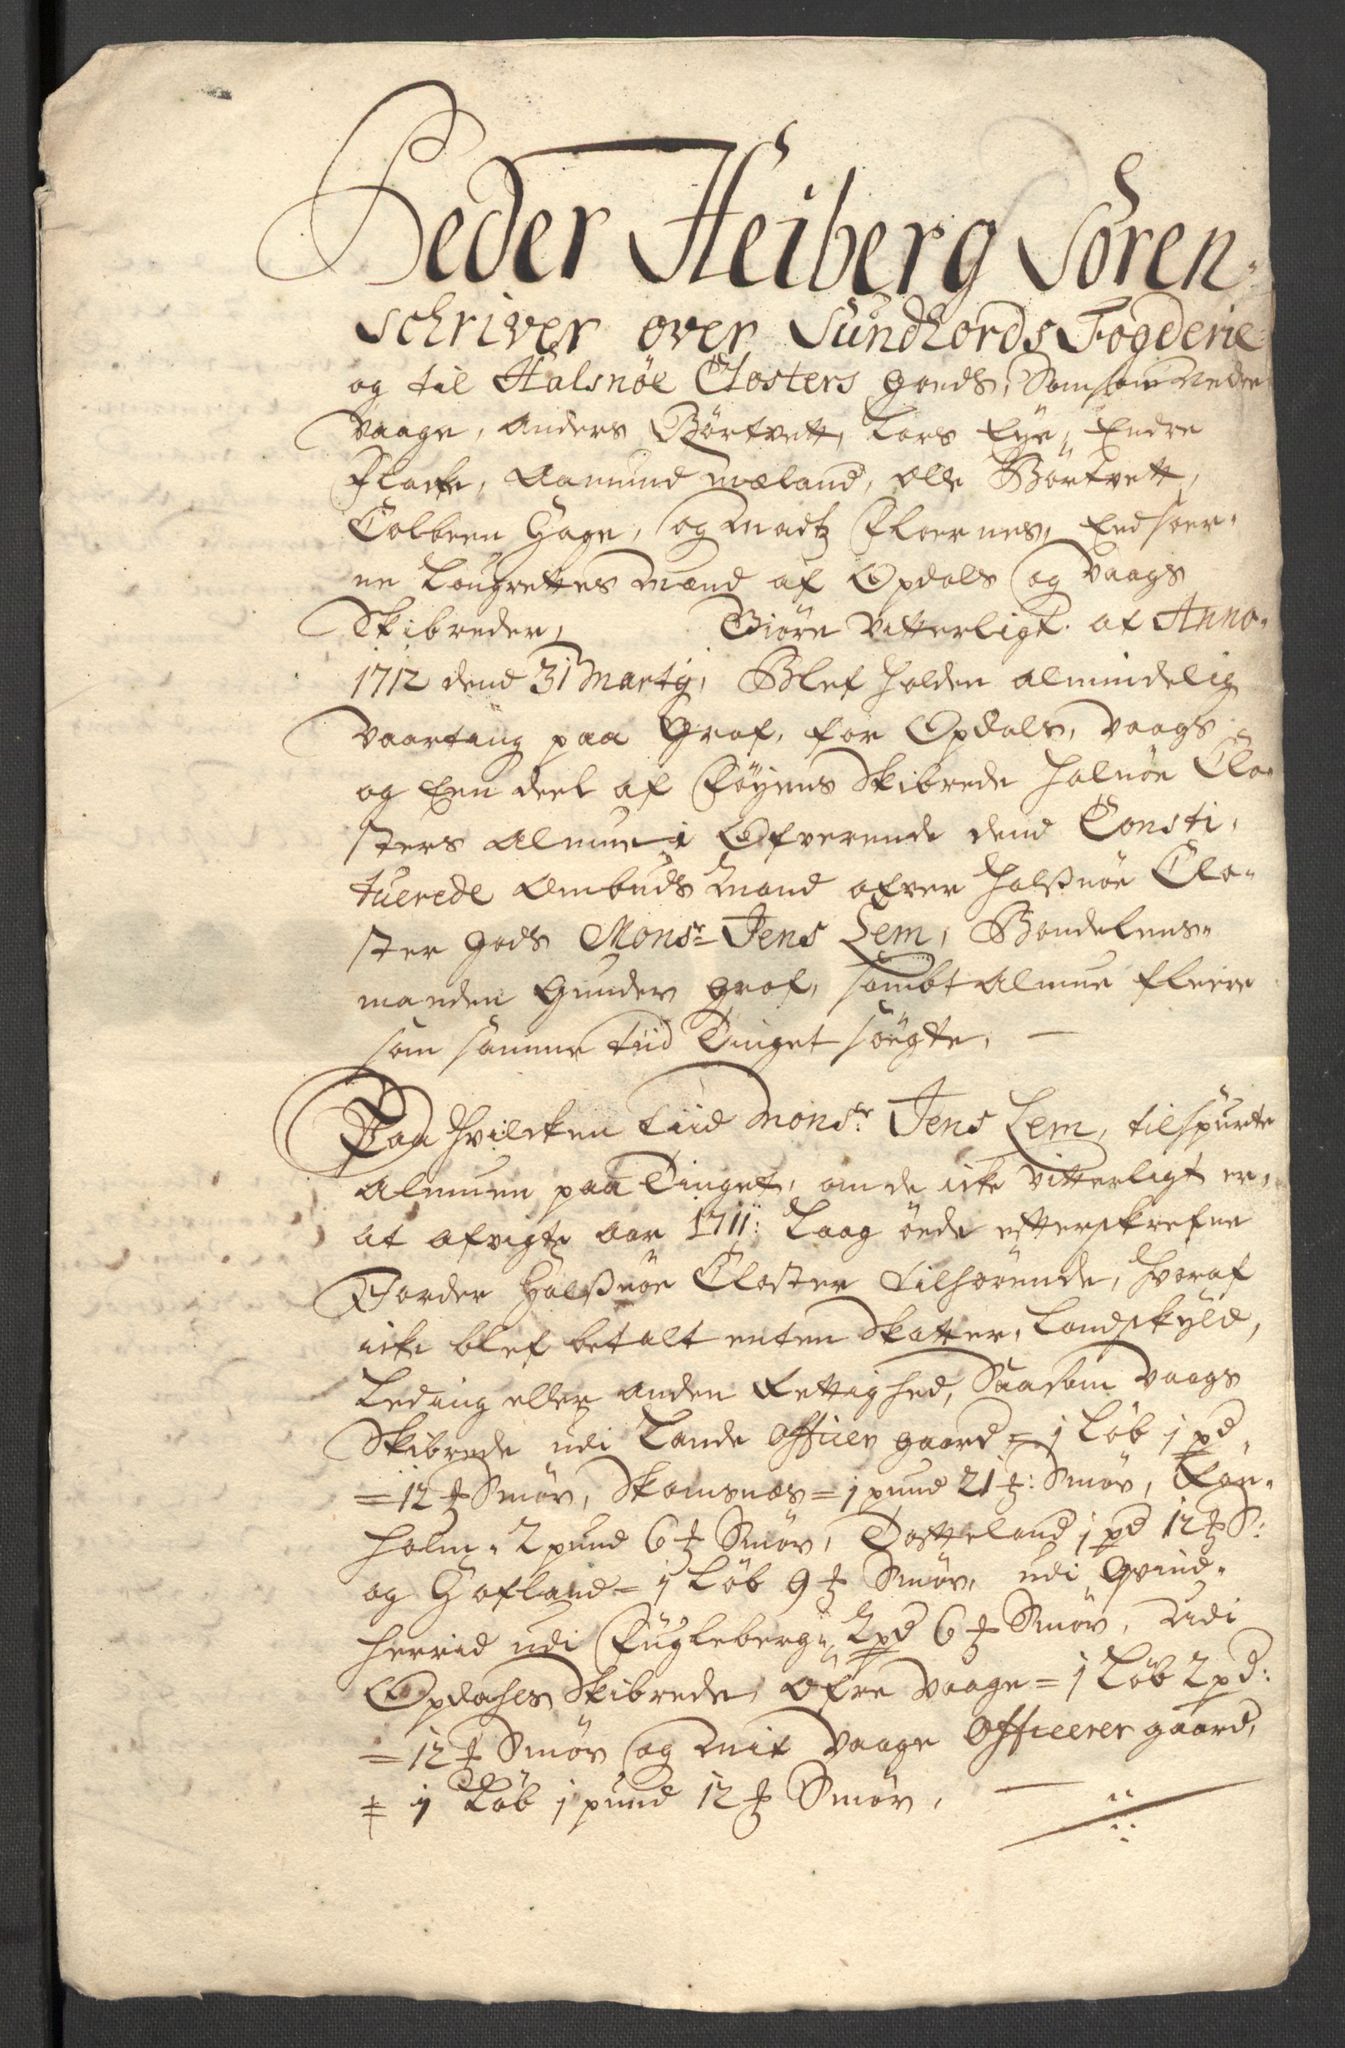 Peder Heiberg Soren-
schriver over Sundhords Fogderie
og til Halsnöe Closters gouds, Samsom Nedre
Vaage, Anders Börtvett, Lars Eye, Endre
Flacke, Aamund Mæland, Olle Börtvett,
Colbeen Hage, og Madtz Floernes, Eedsoer-
ne Laugrettes Mænd af Opdals og Vaags
Skibreder, Giöre Vitterligt at Anno
1712 dend 31 Marty, Blef holden almindelig
Vaarting paa Graf, for Opdals, Vaags
og Een deel af Föyens Skibrede Halnöe Clo-
sters Almue i Ofverende dend Consti-
tuerede Ombuds Mand ofver Halsnöe Clo-
ster gods Monsr Jens Lem, Bondelens-
manden Gunder Graf, sambt Almue fleere
som samme tiid Tinget sögte,
Paa Hvilcken tiid Monsr: Jens Lem, tilspurte
Almuen paa Tinget, om de icke Vitterligt er,
at afvigte Aar 1711: Laag öede efterskrefne
Jorder Halsnöe Closter tilhörende, Hvoraf
icke blef betalt enten Skatter, Landskyld,
Leding eller anden Rettighed, Saasom Vaags
Skibrede udi Lande Officer gaard = 1 Löb 1 pd
= 12 ℔ Smör, Skamsnæs = 1 pund 21 ℔: Smör,
holm = 2 pund 6 ℔ Smör, Dotteland 1 pd 12 ℔ S:
og Hofland = 1 Löb 9 ℔ Smör, udi Qvind-
herrid udi Fugleberg = 2 pd 6 ℔ Smör, Udi
Opdahls Skibrede, Öfre Vaage = 1 Löb 2 pd:
= 12 ℔ Smör og Mit Vaage Officerer gaard,
= 1 Löb 1 pund 12 ℔ Smör,